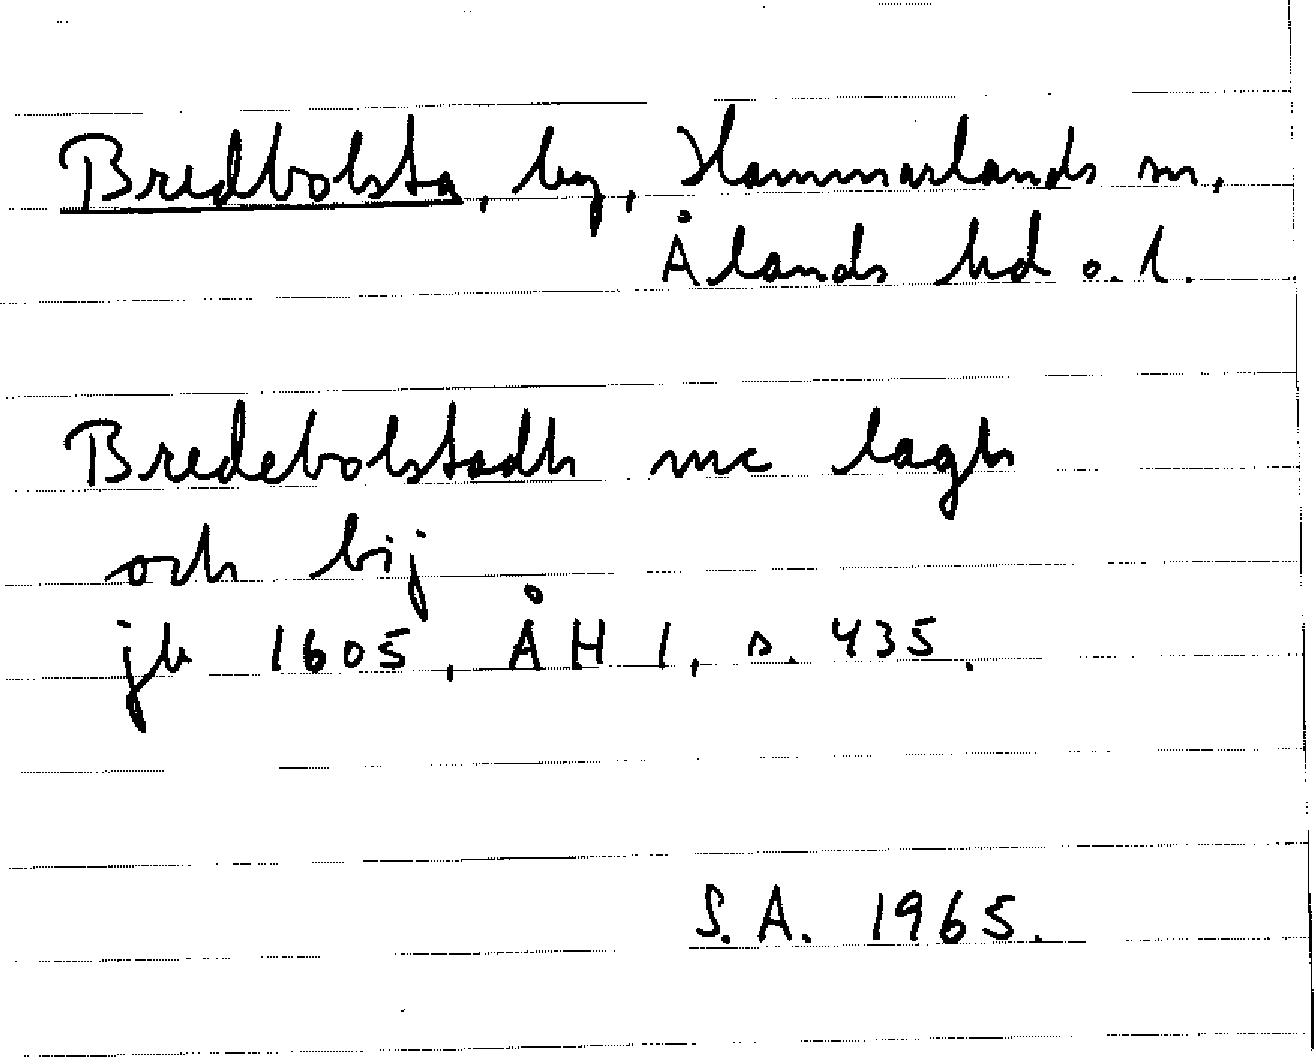 Bredbolsta, by, Hammarlands sn,
Ålands hd o. l.
Bredebolstadh mc lagh
och bij
jb 1605, ÅH 1, s. 435.
S.A. 1965.